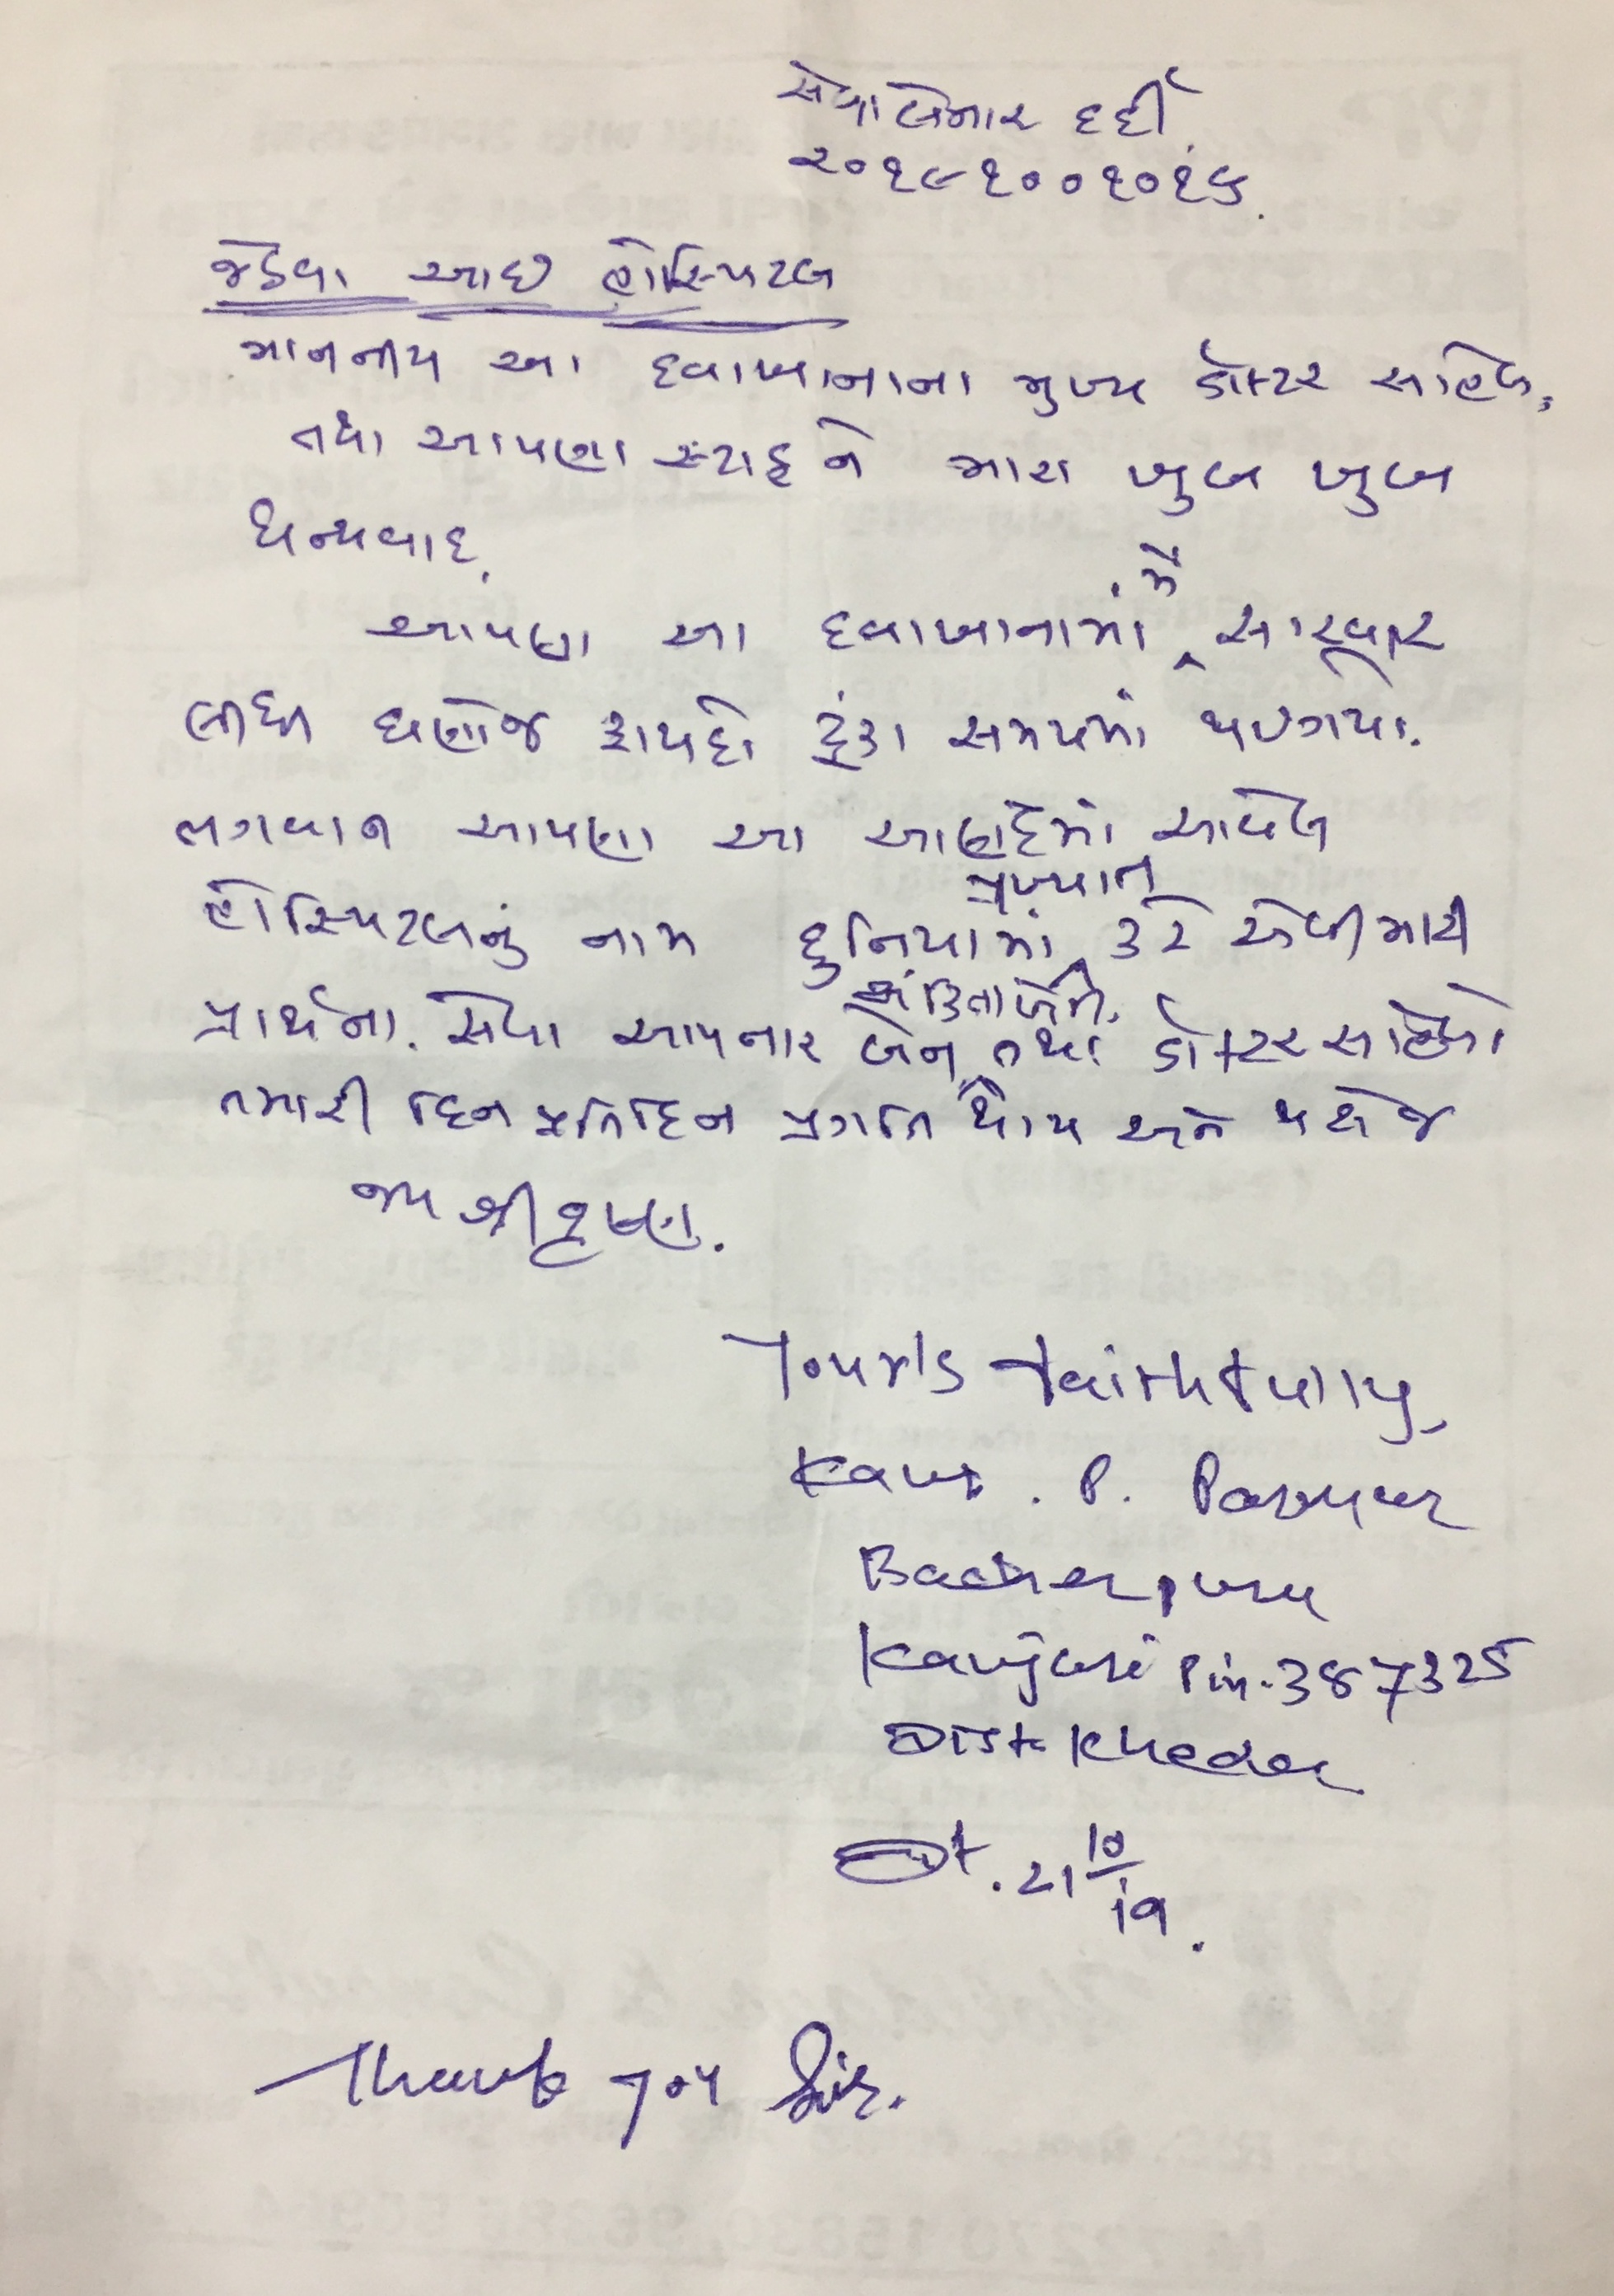 સેવા લેનાર દર્દી
૨૦૧૯૧૦૦૧૦૧૬.
જેડેવા આઇ હોસ્પિટલ
માનનીય આ દવાખાનાના મુખ્ય ડોક્ટર સાહેબ,
તથા આપણા સ્ટાફ ને મારા ખુબ ખુબ
ધન્યવાદ.
આપણા આ દવાખાનામાં મેં સારવાર
લીધી ઘણોજ ફાયદો ટુંકા સમયમાં થઇગયો.
ભગવાન આપણા આ આણંદમાં આવેલ
હોસ્પિટલનું નામ દુનિયામાં પ્રખ્યાત કરે એવી મારી
પ્રાર્થના. સેવા આપનાર બેન તથા ડોક્ટર સાહેબો
તમારી દિન પ્રતિદિન પ્રગતિ થાય અને થશેજ
જય શ્રી કૃષ્ણ.
Your's faithfully,
P. Parmar
Kanjari Pin. 387325
Dist Kheda
Dt. 21 10/19.
Thank you Sir.